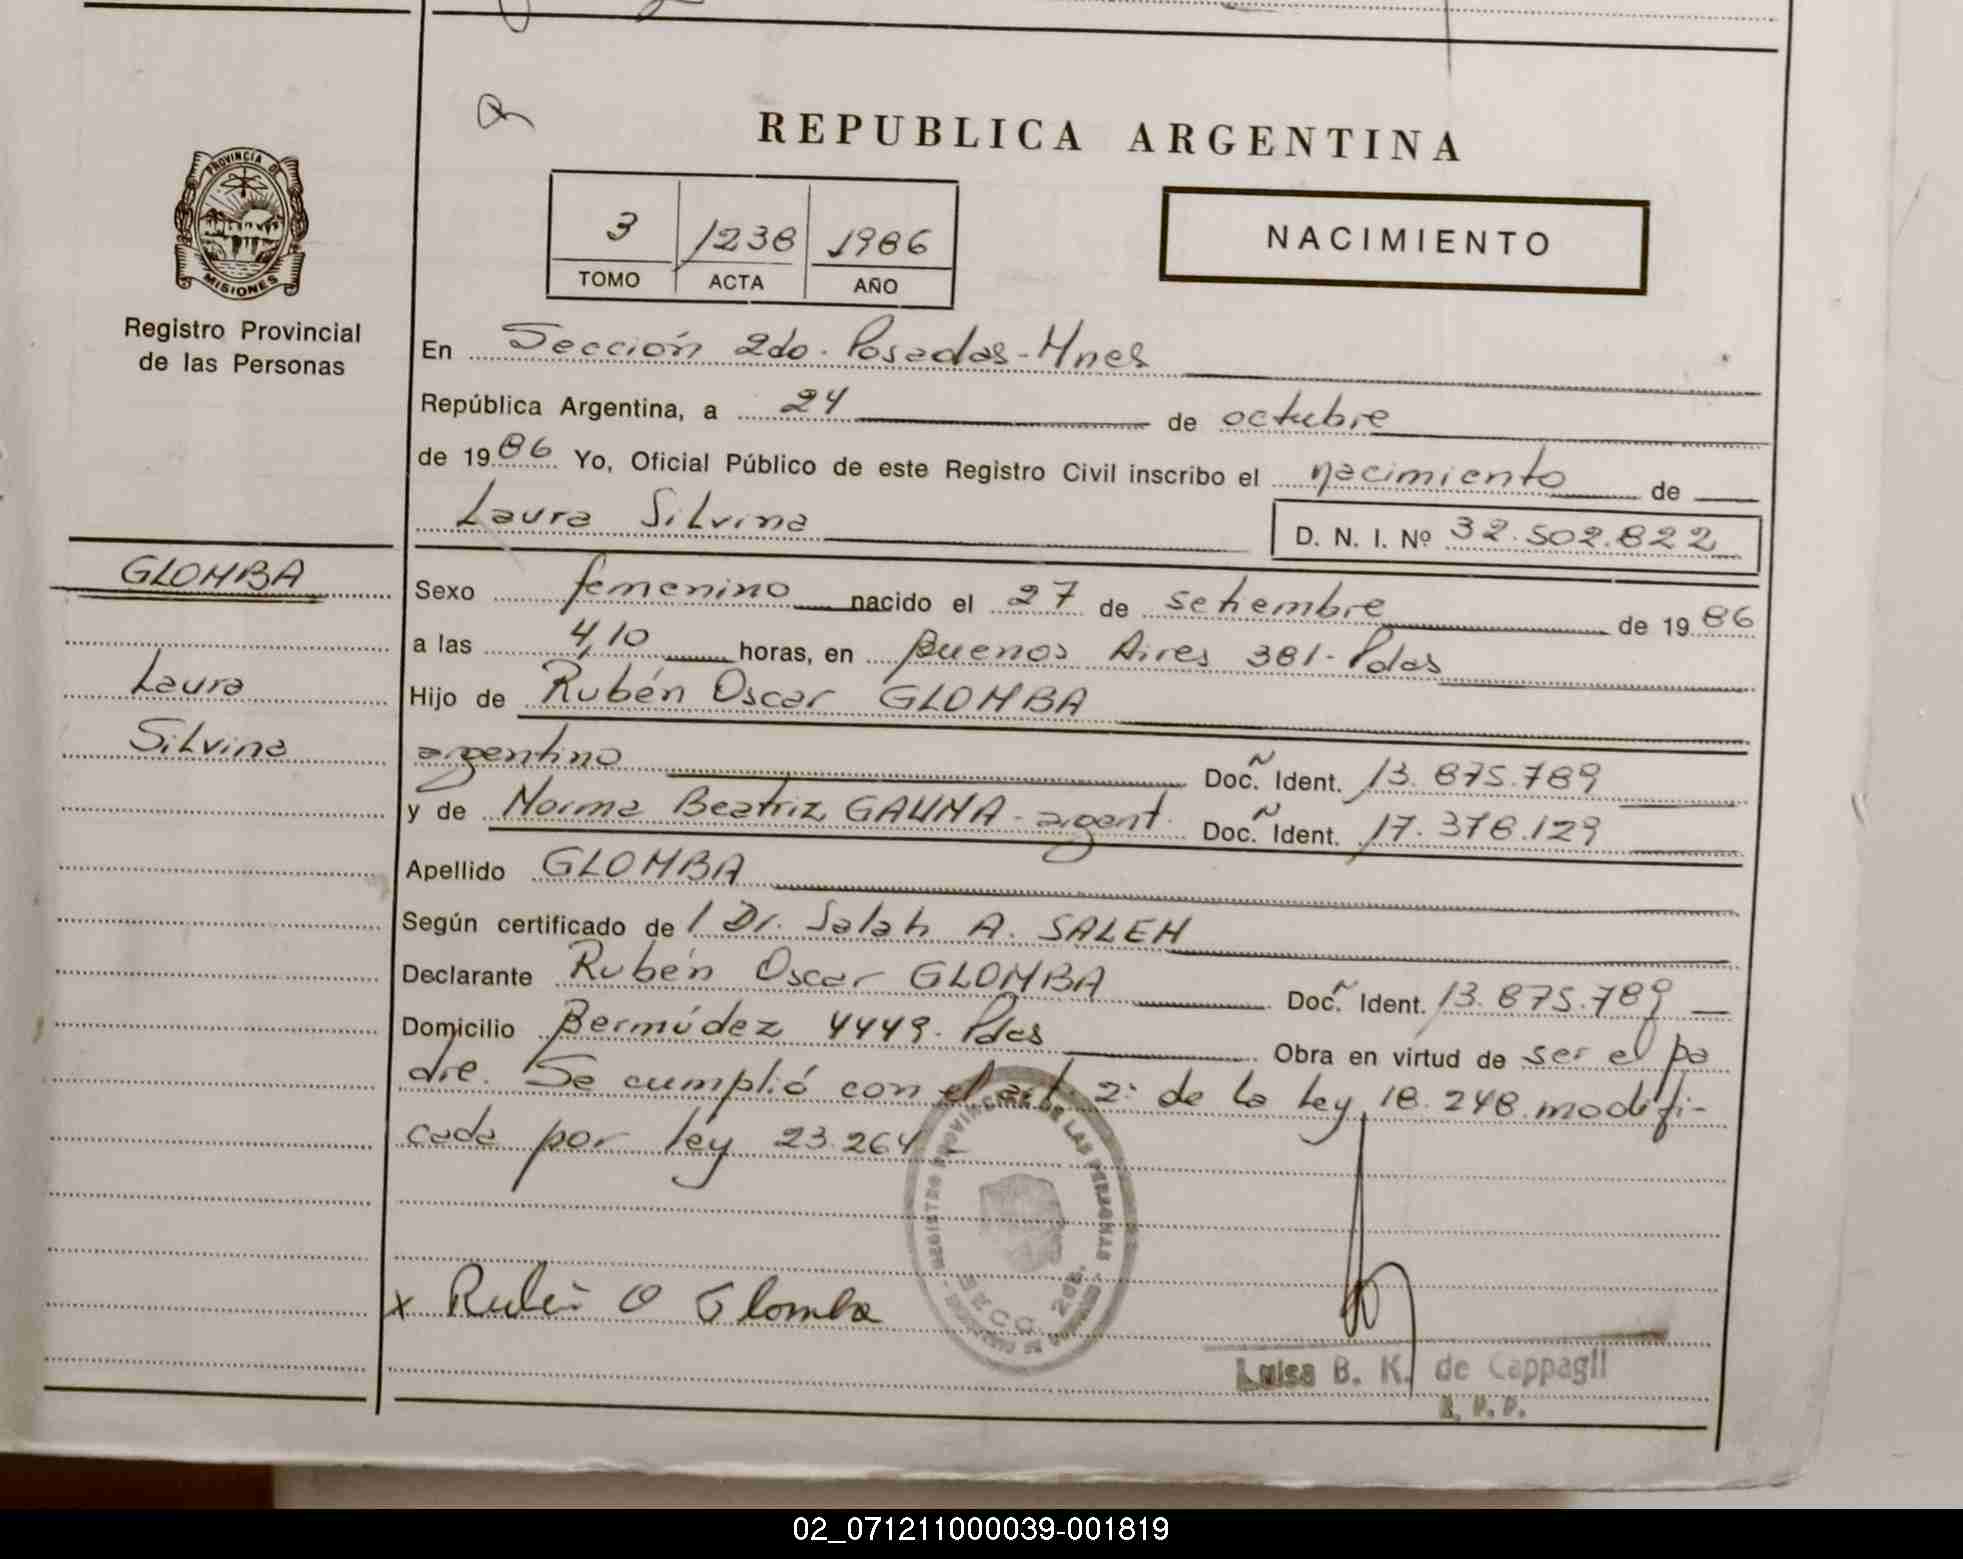 REPUBLICA ARGENTINA
PROVINCIA DE
MISIONES
Registro Provincial
de las Personas
3 1238 1986
TOMO ACTA AÑO
NACIMIENTO
En Sección 2do. Posadas-Mnes
República Argentina, a 24 de octubre
de 1986 Yo, Oficial Público de este Registro Civil inscribo el nacimiento de
Laura Silvina D. N. I. Nº 32.502.822
GLOMBA
Laura
Silvina
Sexo femenino nacido el 27 de setiembre de 1986
a las 4,10 horas, en Buenos Aires 381-Pdas
Hijo de Rubén Oscar GLOMBA
argentino Doc. Ident. 13.875.789
y de Norma Beatriz GAUNA-argent. Doc. Ident. 17.378.129
Apellido GLOMBA
Según certificado de l Dr. Salah A. SALEH
Declarante Rubén Oscar GLOMBA Doc. Ident. 13.875.789
Domicilio Bermúdez 4449-Pdas Obra en virtud de ser el pa
dre. Se cumplió con el art 2: de la ley 18.248 modifi-
cada por ley 23.264-
REGISTRO PROVINCIAL DE LAS PERSONAS
SECC. 2da.
x Rubén O Glomba
Luisa B. K. de Cappagli
02_071211000039-001819